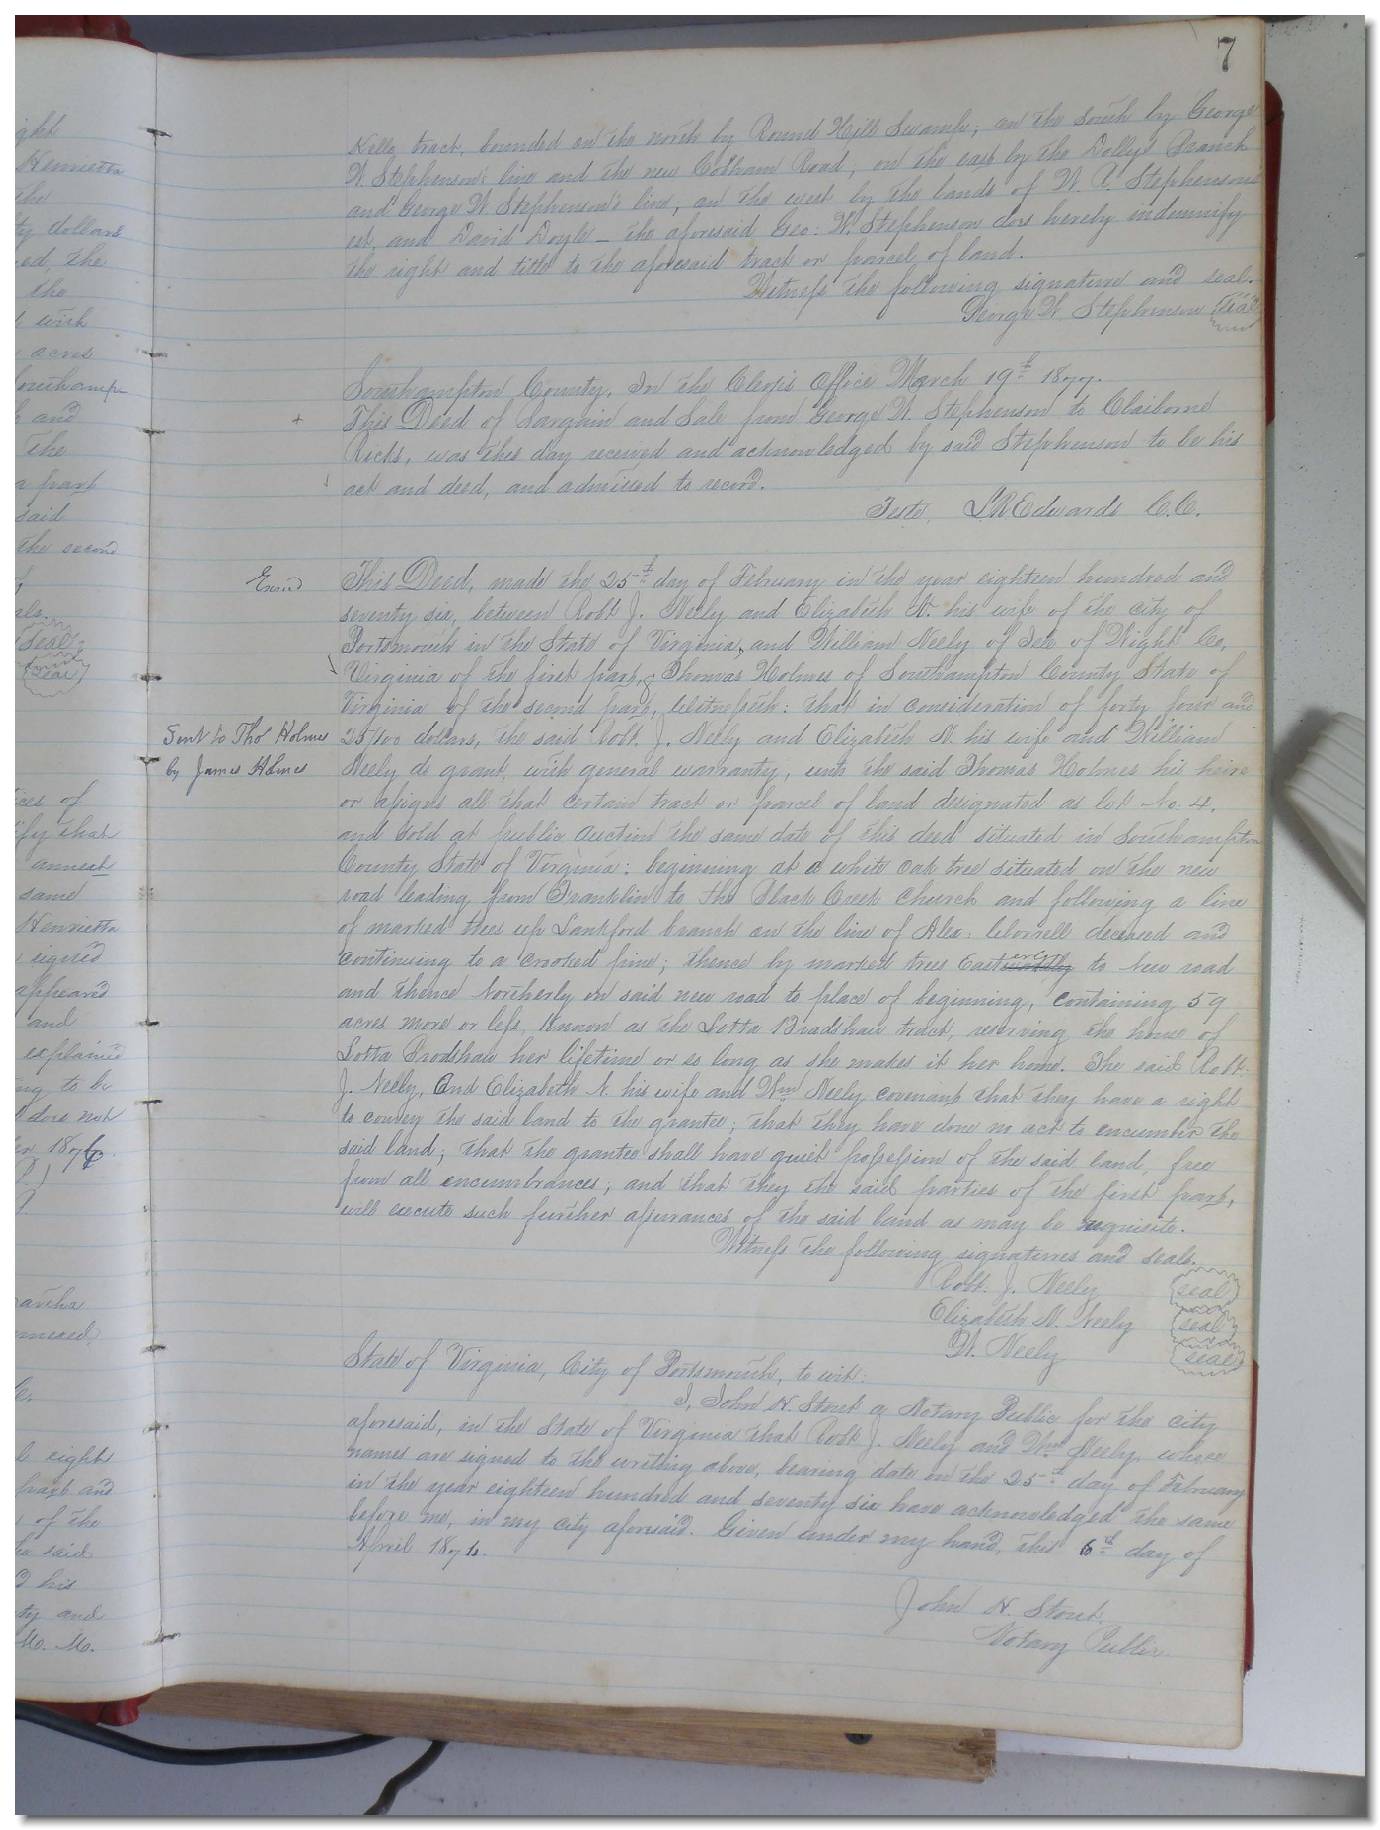 7
Kello tract, bounded on the north by Round Hill Swamp; on the south by George
W. Stephenson's line and the new Cobham Road; on the east by the Dollys Branch
and George W Stephenson's line, on the west by the lands of W. Stephensons
est, and David Doyle – the aforesaid Geo: W. Stephenson does hereby indemnify
the right and title to the aforesaid tract or parcel of land.
Witness the following signature and seal.
George W. Stephenson Seal
Southampton County, In the Clerk's Office March 19th 1877.
+ This Deed of Bargain and Sale from George W. Stephenson to Claiborne
Ricks, was this day received and acknowledged by said Stephenson to be his
act and deed, and admitted to record.
Teste, L.R. Edwards C.C.
Exd This Deed, made the 25th day of February in the year eighteen hundred and
seventy six, between Robt J. Neely and Elizabeth N. his wife of the city of
Portsmouth in the State of Virginia, and William Neely of Isle of Wight Co,
Virginia of the first part, & Thomas Holmes of Southampton County State of
Virginia of the second part, Witnesseth: that in consideration of forty four and
Sent to Thos Holmes
by James Holmes
25/100 dollars, the said Robt. J. Neely and Elizabeth N. his wife and William
Neely do grant, with general warranty, unto the said Thomas Holmes his heirs
or assigns all that certain tract or parcel of land designated as Lot No. 4,
and sold at public auction the same date of this deed situated in Southampton
County State of Virginia: beginning at a white oak tree situated on the new
road leading from Franklin to the Black Creek Church and following a line
of marked trees up Lankford branch on the line of Alex. Worrell deceased and
continuing to a crooked pine; thence by marked trees Easterly to New road
and thence Northerly on said new road to place of beginning, containing 59
acres more or less, Known as the Lotta Bradshaw tract, reserving the home of
Lotta Bradshaw her lifetime or so long as she makes it her home. The said Robt.
J. Neely, And Elizabeth N. his wife and Wm Neely covenant that they have a right
to convey the said land to the grantee; that they have done no act to encumber the
said land; that the grantee shall have quiet possession of the said land, free
from all encumbrances; and that they the said parties of the first part,
will execute such further assurances of the said land as may be requisite.
Witness the following signatures and seals.
Robt. J. Neely seal
Elizabeth N. Neely seal
W. Neely seal
State of Virginia, City of Portsmouth, to wit:
I, John N. Stout a Notary Public for the city
aforesaid, in the State of Virginia that Robt J. Neely and Wm Neely, whose
names are signed to the writing above, bearing date on the 25th day of February
in the year eighteen hundred and seventy six have acknowledged the same
before me, in my city aforesaid. Given under my hand, this 6th day of
April 1876.
John N. Stout.
Notary Public.